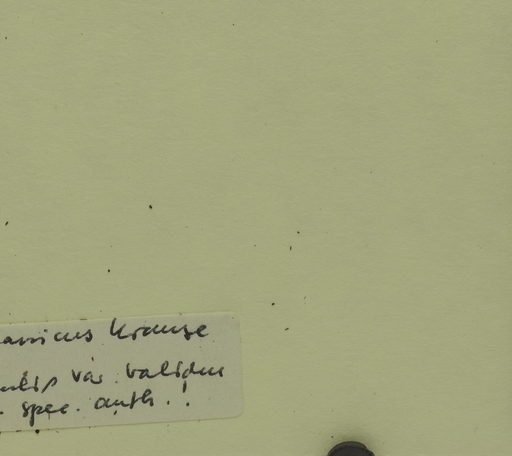 avicus Krause
var. validum
spec. auth. !